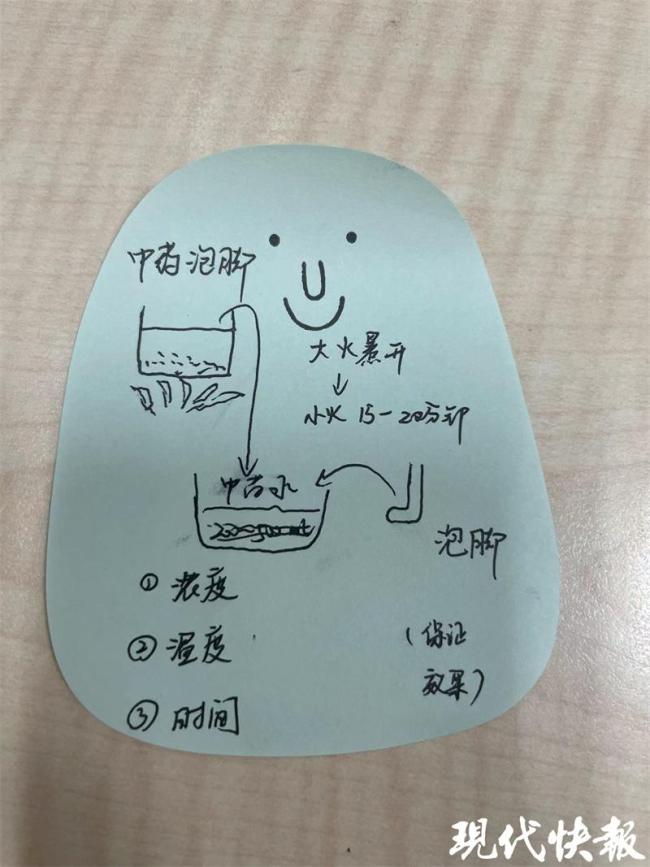 中药泡脚
大火煮开
小火 15-20分钟
中药水
泡脚
① 浓度
② 温度
③ 时间
(保证
效果)
现代快報